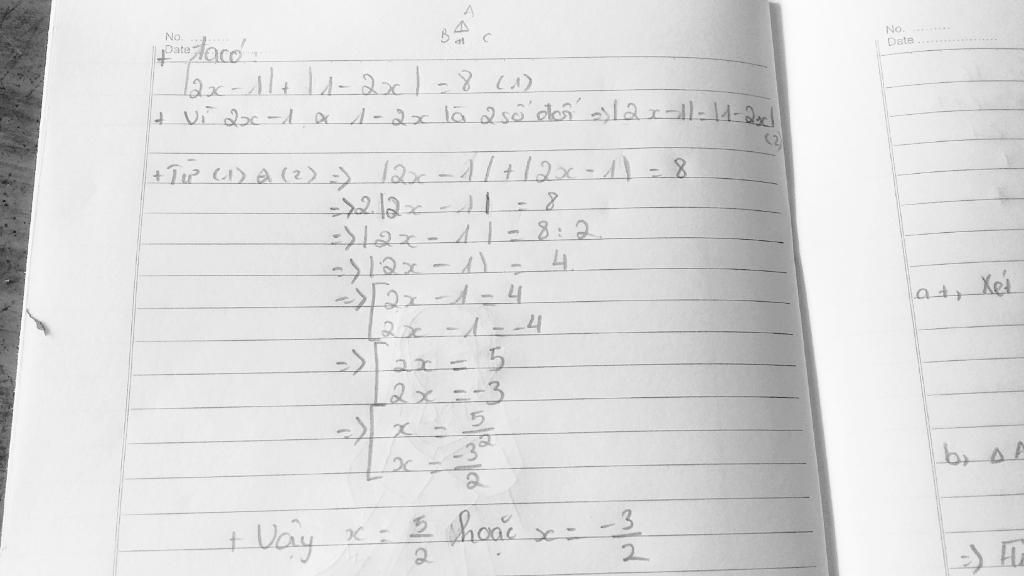 A
B C
No. ............
Date
+ Ta có:
|2x - 1| + |1 - 2x| = 8 (1)
+ Vì 2x - 1 & 1 - 2x là 2 số đối => |2x - 1| = |1 - 2x|
(2)
+ Từ (1) & (2) => |2x - 1| + |2x - 1| = 8
=> 2.|2x - 1| = 8
=> |2x - 1| = 8 : 2
=> |2x - 1| = 4.
=> [ 2x - 1 = 4
2x - 1 = -4
=> [ 2x = 5
2x = -3
=> [ x = 5/2
x = -3/2
+ Vậy x = 5/2 hoặc x = -3/2
No. ............
Date ......................
a +, Xét
b, Δ
=>